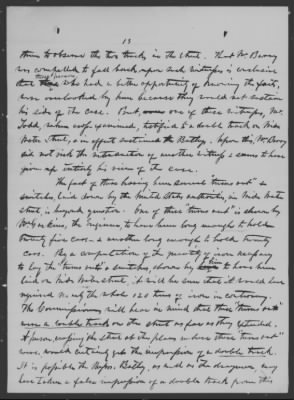 13
them to observe the two tracks in the street. That Mr. Barry
was compelled to fall back upon such witnesses is conclusive
that those persons who had a better opportunity of knowing the facts,
were overlooked by him because they would not sustain
his side of the case. But, one of these witnesses, Mr.
Todd, when cross-examined, testified to a double track on Wide
Water Street, so in effect sustained Batley. Upon this Mr. Barry
did not risk the introduction of another witness & seems to have
given up entirely his view of the case.
The fact of there having been several "turns out" or
switches, laid down by the United States authorities, in Wide Water
street is beyond question. One of these "turns out" is shown by
McGarkins, the engineer, to have been long enough to hold
twenty five cars & another long enough to hold twenty
cars. By a computation of the quantity of iron necessary
to lay the turns outs & switches, shown by him to have been
laid on Wide Water street, it will be seen that it would have
required nearly the whole 120 tons of iron in controversy.
The Commissioners will bear in mind that these "turns outs"
were a double track on the street as far as they extended.
A person, crossing the street at the places where these "turns out"
were, would certainly get the impression of a double track.
It is possible the Messrs. Batley, as well as the drayman, may
have taken a false impression of a double track from this